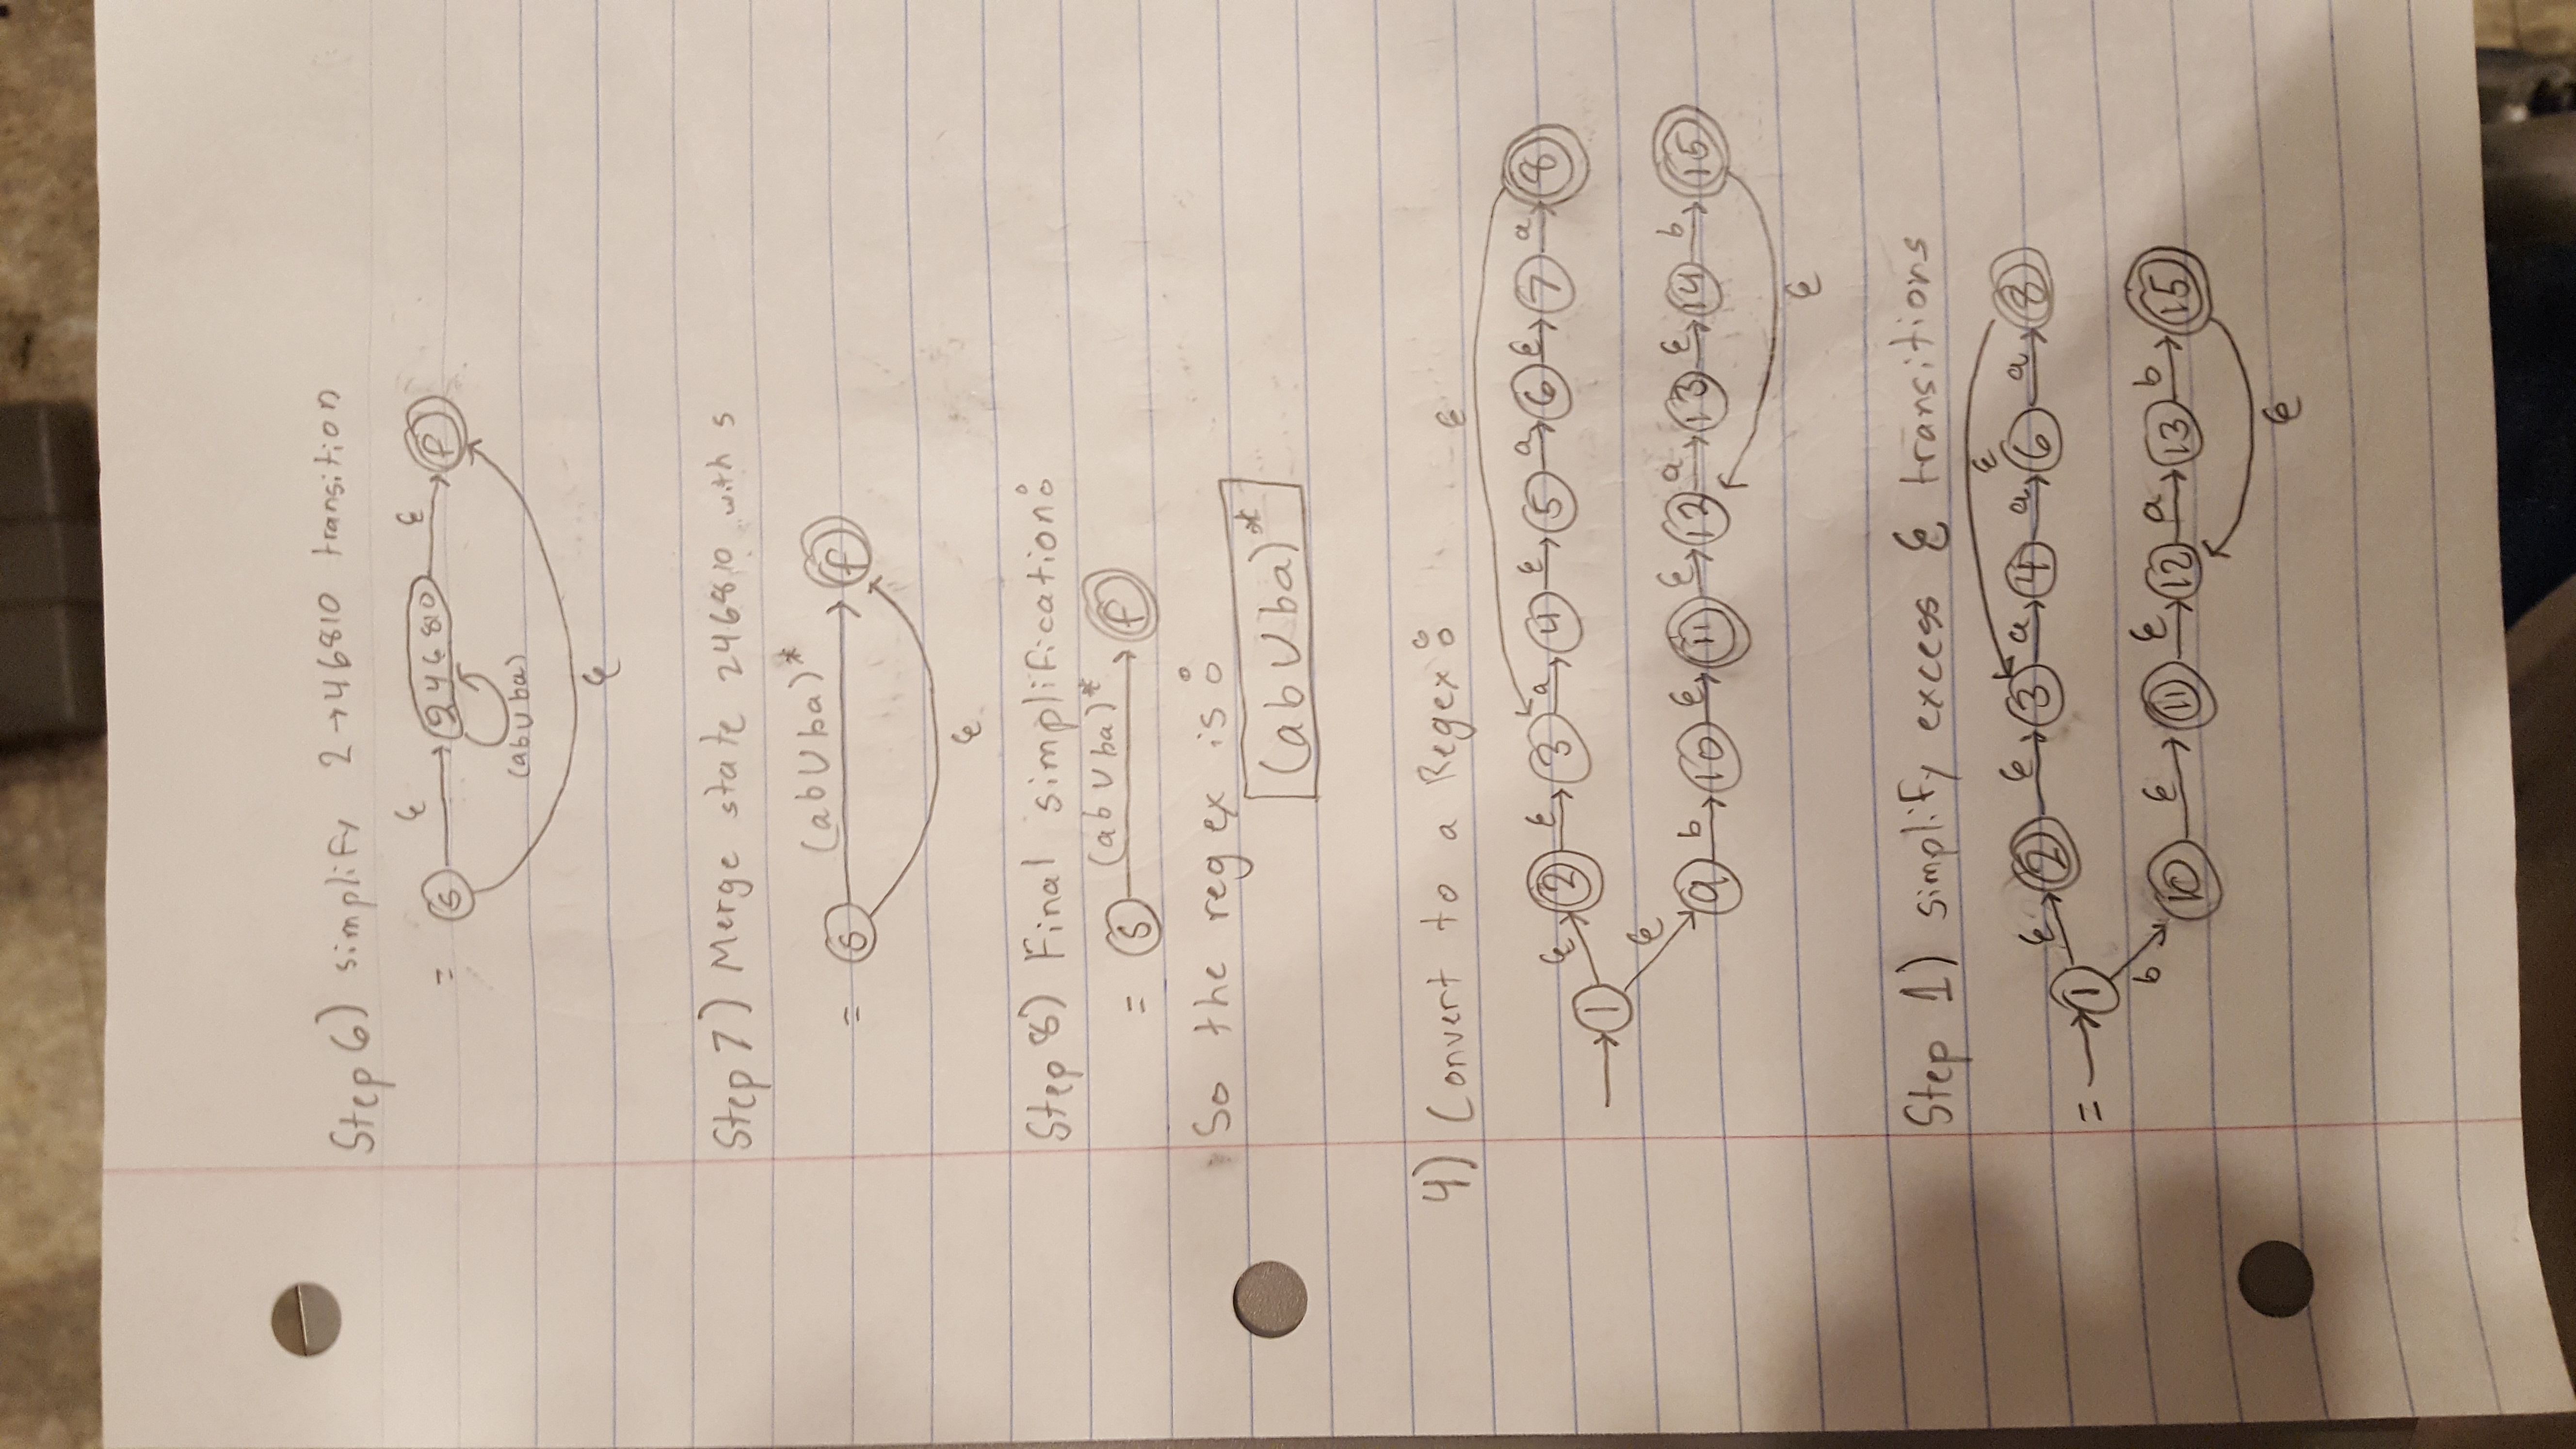 Step 6) simplify 2→46810 transition
= s ε 246810 ε f
(ab∪ba)
ε
Step 7) Merge state 246810 with s
(ab∪ba)*
= s f
ε
Step 8) Final simplification:
(ab∪ba)*
= s f
So the regex is:
(ab∪ba)*
4) Convert to a Regex:
ε
ε 2 ε 3 a 4 ε 5 a 6 ε 7 a 8
1
ε
9 b 10 ε 11 ε 12 a 13 ε 14 b 15
ε
Step 1) simplify excess ε transitions
ε
ε 2 ε 3 a 4 a 6 a 8
= 1
b
10 ε 11 ε 12 a 13 b 15
ε